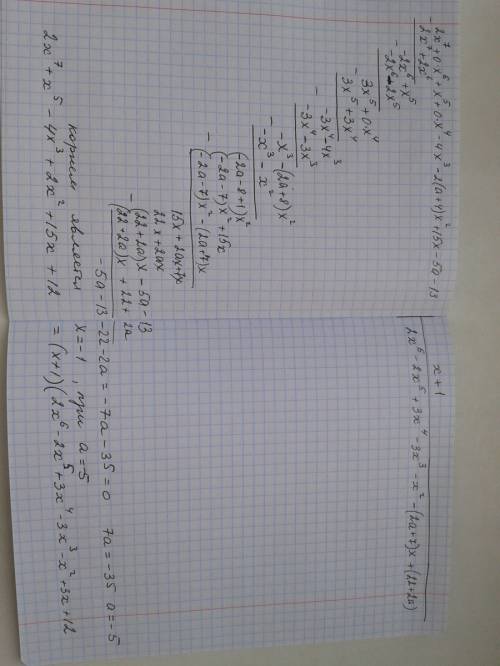 2x⁷+0·x⁶+x⁵+0·x⁴-4x³-2(a+4)x²+15x-5a-13 | x+1
2x⁷+2x⁶ | 2x⁶-2x⁵+3x⁴-3x³-x²-(2a+7)x+(22+2a)
-2x⁶+x⁵
-2x⁶-2x⁵
3x⁵+0·x⁴
3x⁵+3x⁴
-3x⁴-4x³
-3x⁴-3x³
-x³-(2a+8)x²
-x³-x²
(-2a-8+1)x²
(-2a-7)x²+15x
(-2a-7)x²-(2a+7)x
15x+2ax+7x
22x+2ax
(22+2a)x-5a-13
(22+2a)x+22+2a
-5a-13-22-2a=-7a-35=0 7a=-35 a=-5
корнем является x=-1, при a=-5
2x⁷+x⁵-4x³+2x²+15x+12=(x+1)(2x⁶-2x⁵+3x⁴-3x³-x²+3x+12